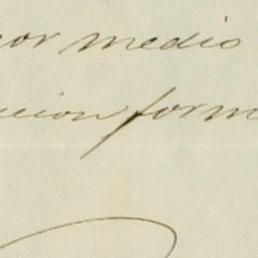 por medio
cion form